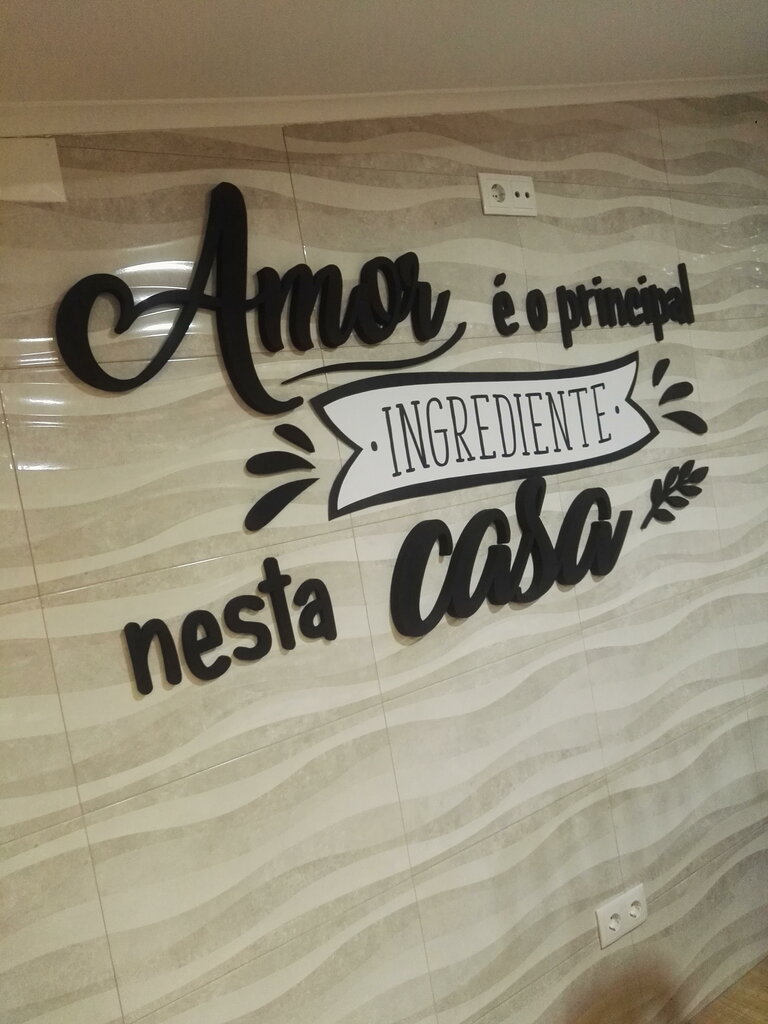 Amor é o principal
INGREDIENTE
nesta casa